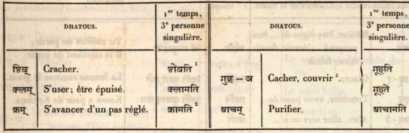 DHATOUS.
1er temps,
3e personne
singulière.
DHATOUS.
1er temps,
3e personne
singulière.
Cracher.
क्लम् S'user; être épuisé. क्लामति
क्रम् S'avancer d'un pas réglé. क्रामति 2
गुह् – ञ Cacher, couvrir 2. गूहति
गूहते
आचम् Purifier. आचामति